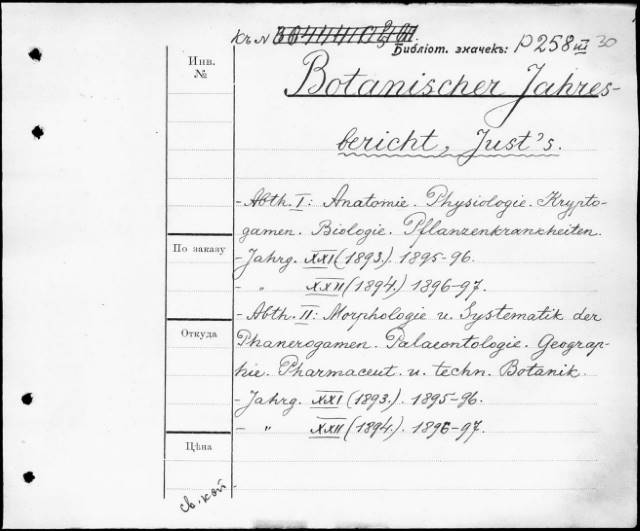 Къ N
Библіот. значекъ: P258 III 30
Инв.
№
Botanischer Jahres-
bericht, Just's.
- Abth. I: Anatomie. Physiologie. Krypto-
gamen. Biologie. Pflanzenkrankheiten.
По заказу
- Jahrg. XXI (1893.) 1895-96.
- " XXII (1894.) 1896-97.
- Abth. II: Morphologie u. Systematik der
Откуда
Phanerogamen. Palaeontologie. Geograp-
hie. Pharmaceut. u. techn. Botanik.
- Jahrg. XXI (1893.). 1895-96.
- " XXII (1894.). 1896-97.
Цѣна
св. кой